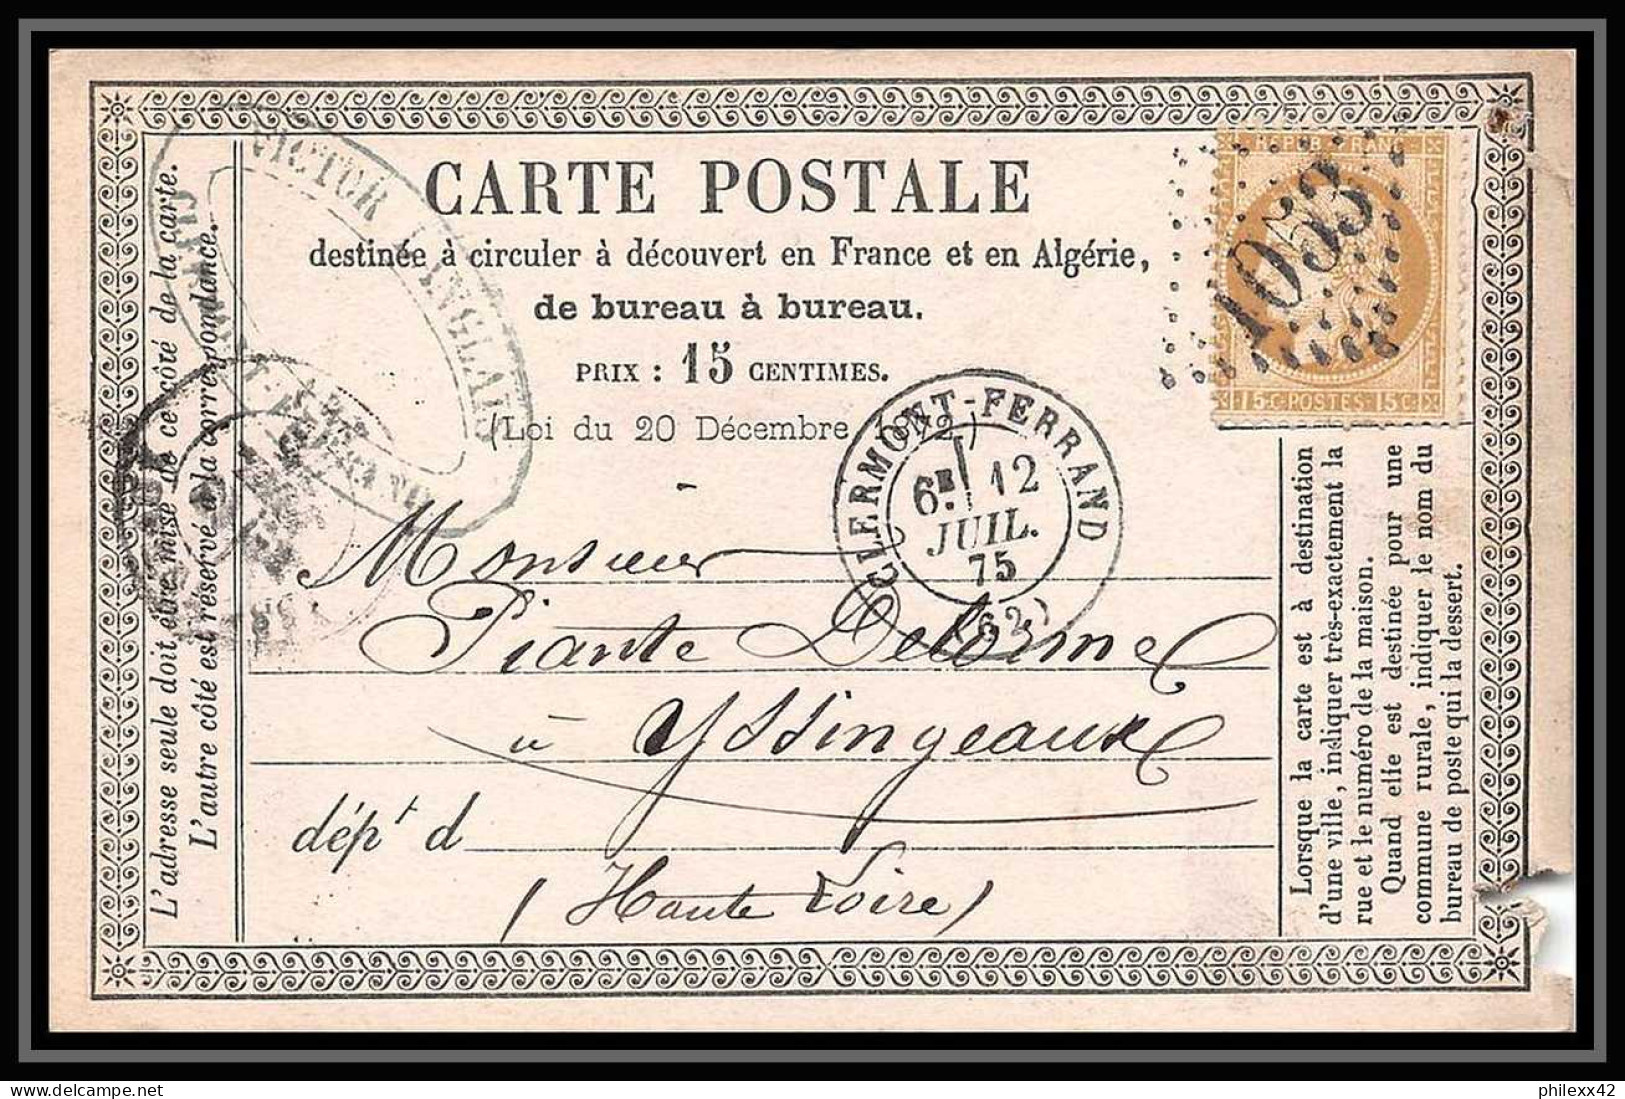 CARTE POSTALE
destinée à circuler à découvert en France et en Algérie,
de bureau à bureau.
PRIX : 15 CENTIMES.
(Loi du 20 Décembre 1872)
VICTOR LANGLAIS
REPUB. FRANC.
1053
15 C. POSTES 15 C.
CLERMONT-FERRAND
6E 12
JUIL.
75
(62)
Monsieur
Piante Delorme
à Yssingeaux
dépt d
(Haute Loire)
L'adresse seule doit être mise de ce côté de la carte.
L'autre côté est réservé à la correspondance.
Lorsque la carte est à destination
d'une ville, indiquer très-exactement la
rue et le numéro de la maison.
Quand elle est destinée pour une
commune rurale, indiquer le nom du
bureau de poste qui la dessert.
delcampe.net
philexx42